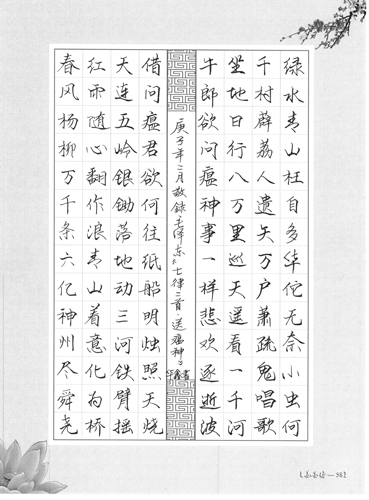 绿水青山枉自多华佗无奈小虫何
千村薜荔人遗矢万户萧疏鬼唱歌
坐地日行八万里巡天遥看一千河
牛郎欲问瘟神事一样悲欢逐逝波
庚子年二月敬录毛泽东《七律二首·送瘟神》
借问瘟君欲何往纸船明烛照天烧
天连五岭银锄落地动三河铁臂摇
红雨随心翻作浪青山着意化为桥
春风杨柳万千条六亿神州尽舜尧